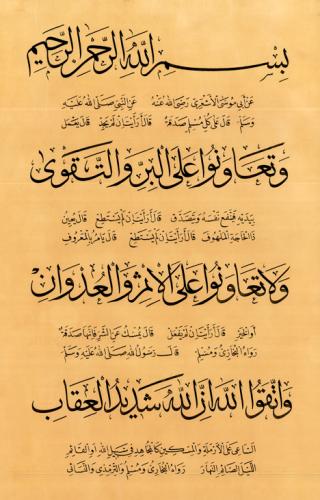 بسم الله الرحمن الرحيم
عن أبي موسى الأشعري رضي الله عنه عن النبي صلى الله عليه
وسلم قال على كل مسلم صدقة قال أرأيت إن لم يجد قال يعتمل
وتعاونوا على البر والتقوى
بيديه فينفع نفسه ويتصدق قال أرأيت إن لم يستطع قال يعين
ذا الحاجة الملهوف قال أرأيت إن لم يستطع قال يأمر بالمعروف
ولا تعاونوا على الإثم والعدوان
أو الخير قال أرأيت إن لم يفعل قال يمسك عن الشر فإنها صدقة
رواه البخاري ومسلم قال رسول الله صلى الله عليه وسلم
واتقوا الله إن الله شديد العقاب
الساعي على الأرملة والمسكين كالمجاهد في سبيل الله أو القائم
الليل الصائم النهار رواه البخاري ومسلم والترمذي والنسائي